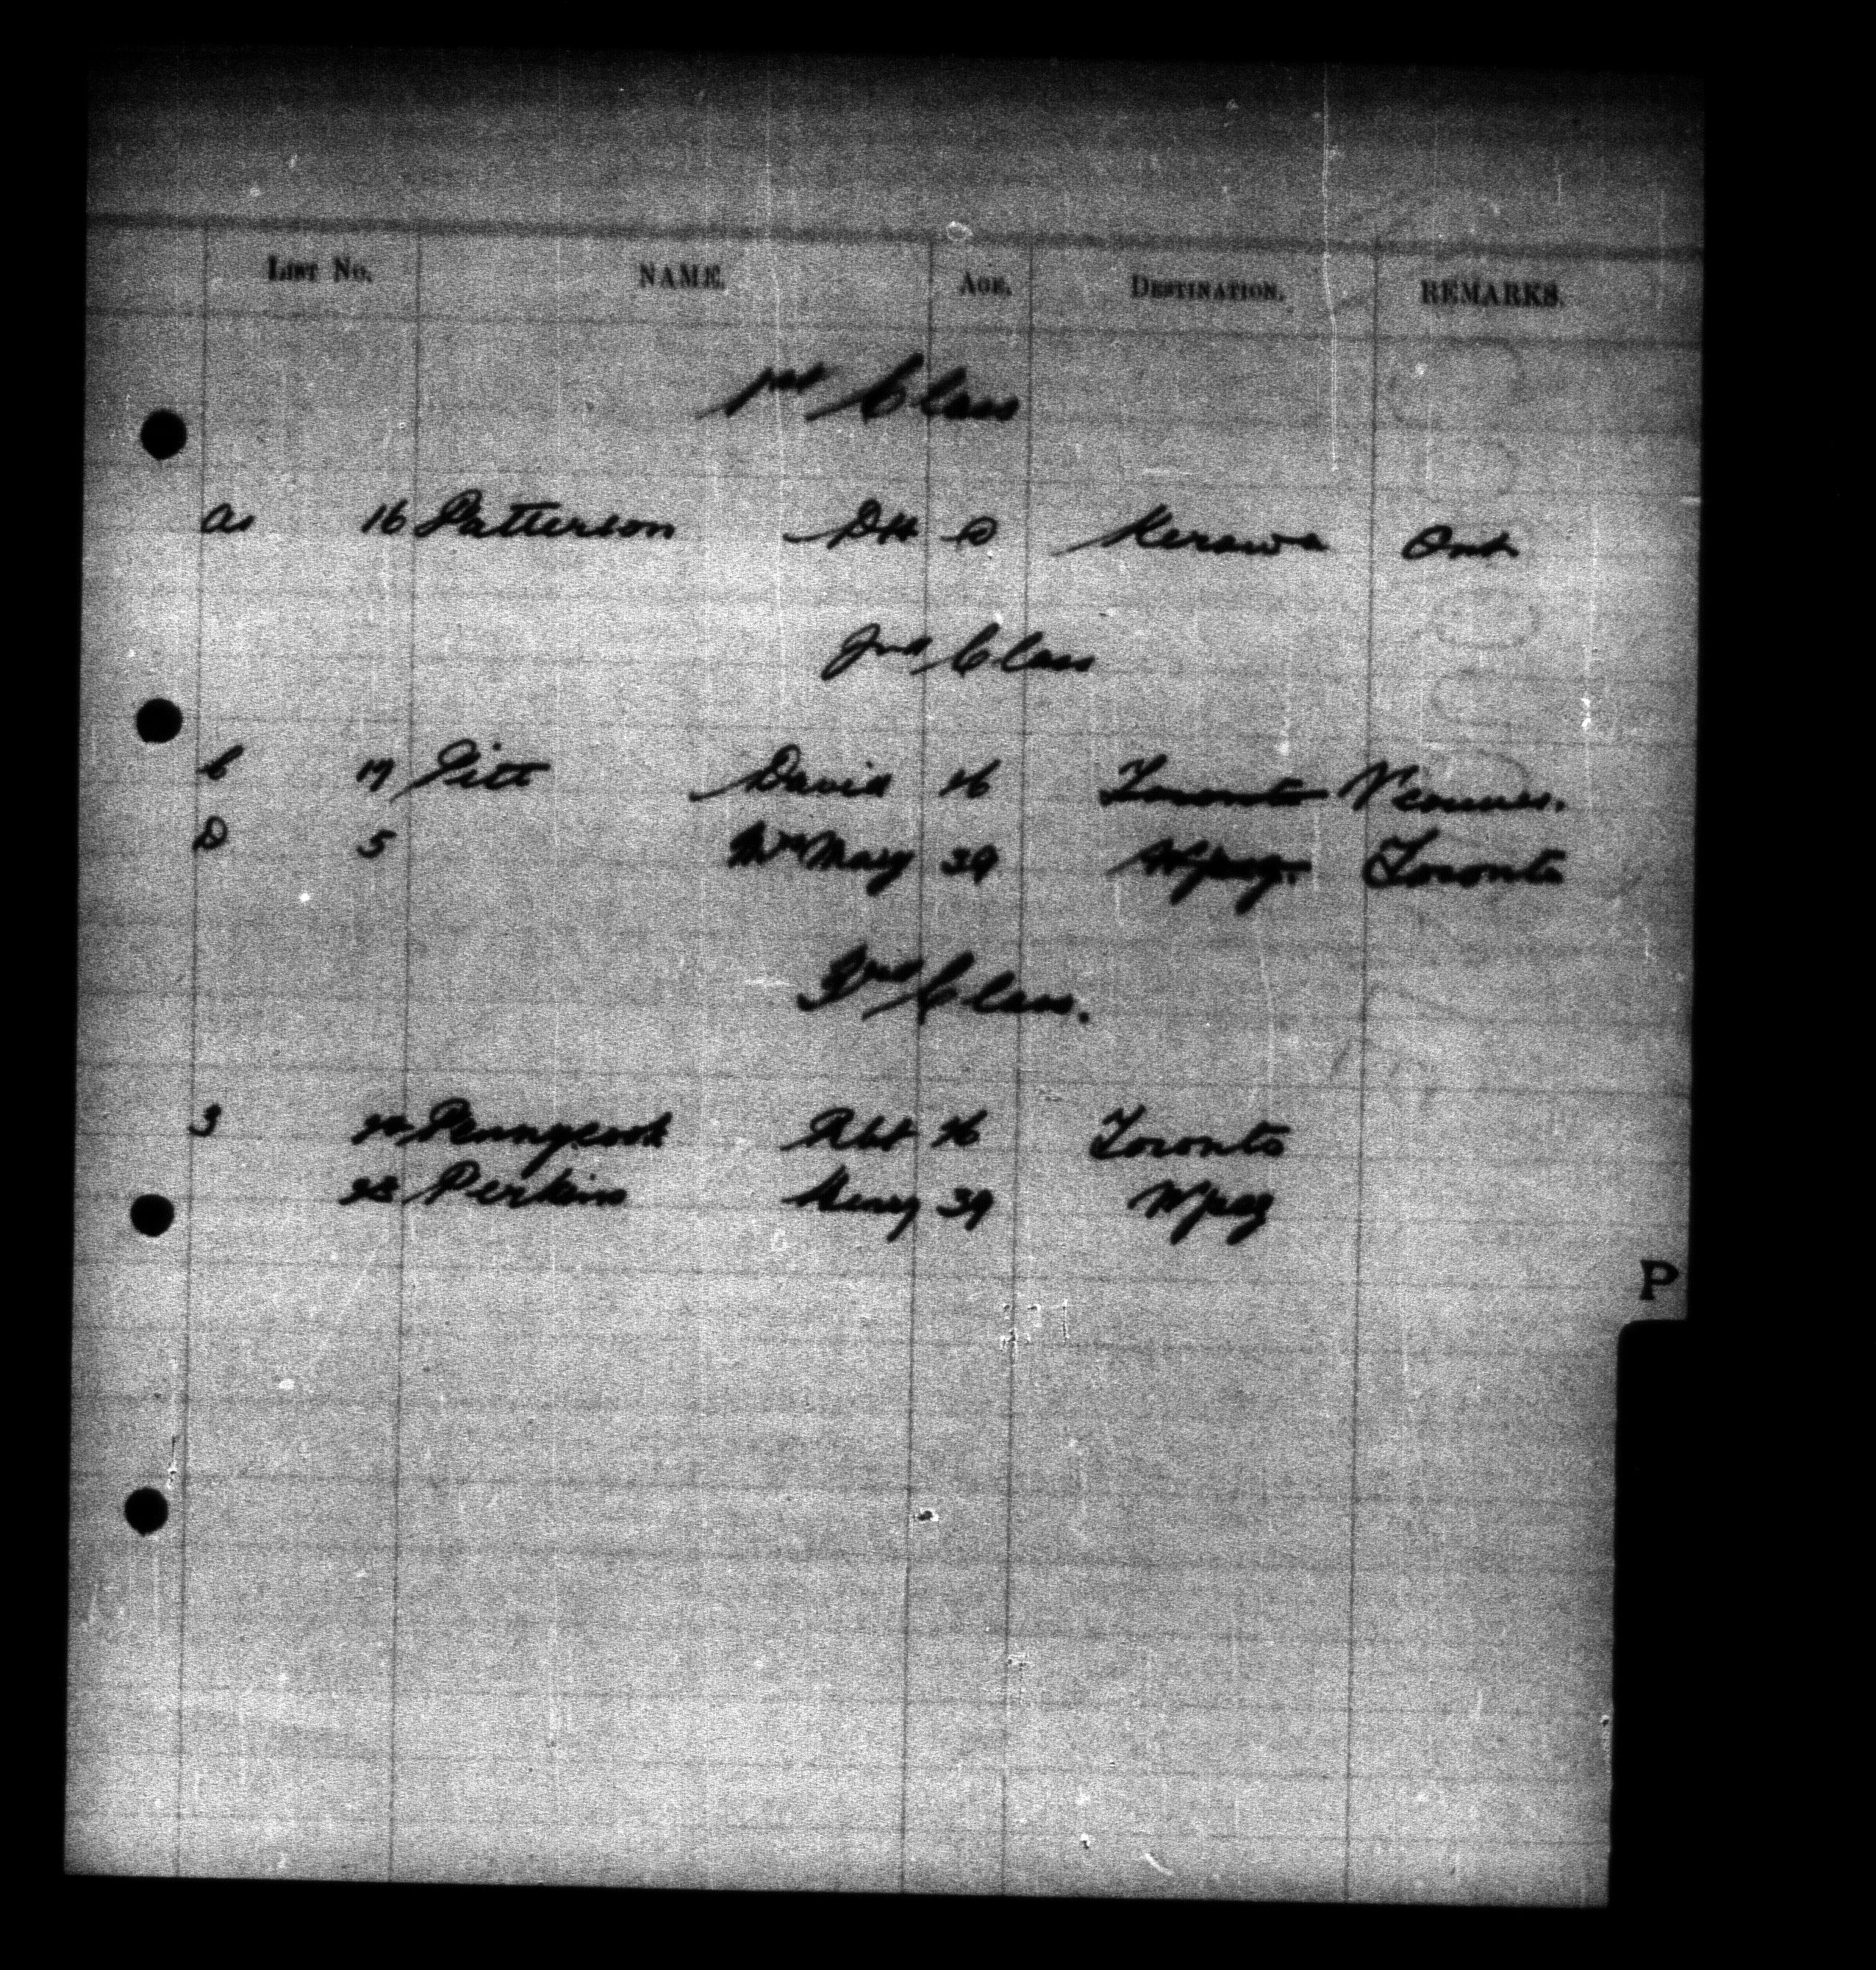 LIST No. NAME. AGE. DESTINATION. REMARKS.
1st Class
16 Patterson Ont
2nd Class
C 17 Pitt David 16 Toronto Vcouver.
D 5 Mrs Mary 39 Wpeg. Toronto
3rd Class.
3 Pennycook Toronto
28 Perkins Henry 39 Wpeg
P